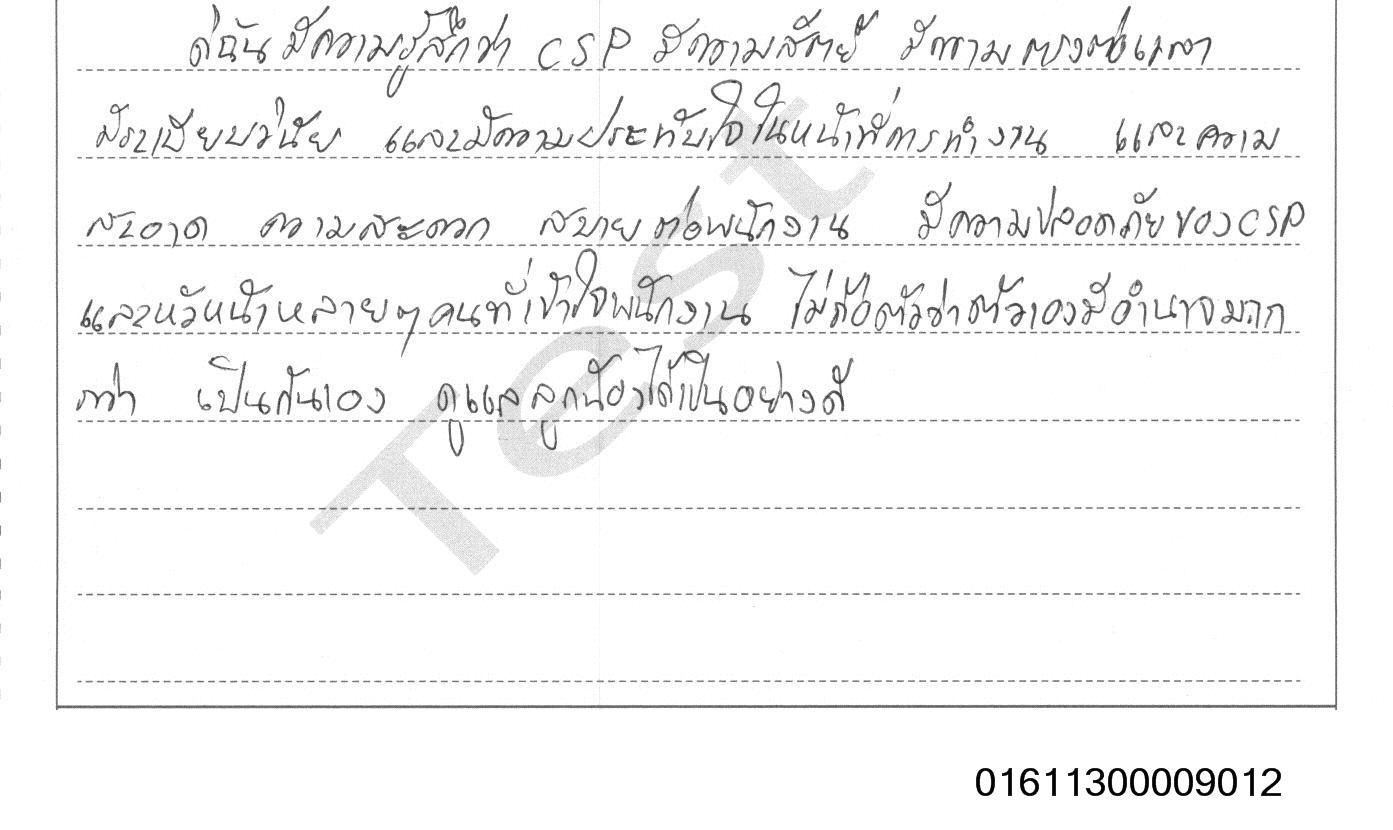 ดิฉันมีความรู้สึกว่า CSP มีความสัตย์ มีความตรงต่อเวลา
มีระเบียบวินัย และมีความประทับใจในหน้าที่การทำงาน และความ
สะอาด ความสะดวก สบายต่อพนักงาน มีความปลอดภัยของCSP
และหัวหน้าหลายๆคนที่เข้าใจพนักงาน ไม่ถือตัวว่าตัวเองมีอำนาจมาก
กว่า เป็นกันเอง ดูแลลูกน้องได้เป็นอย่างดี
Test
01611300009012